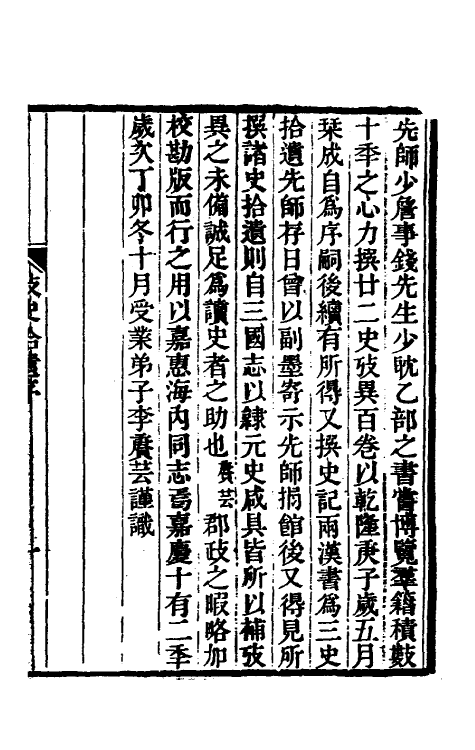 先師少詹事錢先生少耽乙部之書嘗博覽羣籍積數
十季之心力撰廿二史攷異百卷以乾隆庚子歲五月
栞成自爲序嗣後續有所得又撰史記兩漢書爲三史
拾遺先師存日曾以副墨寄示先師捐館後又得見所
撰諸史拾遺則自三國志以隸元史咸具皆所以補攷
異之未備誠足爲讀史者之助也賡芸郡政之暇略加
校勘版而行之用以嘉惠海內同志焉嘉慶十有二季
歲次丁卯冬十月受業弟子李賡芸謹識
史拾遺序